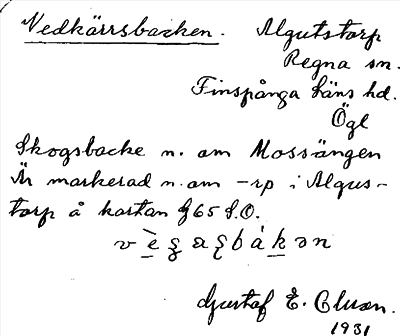 Vedkärrsbacken. Algutstorp
Regna sn.
Finspånga läns hd.
Ögl
Skogsbacke n. om Mossängen
Är markerad n. om -rp i Algus-
torp å kartan f 65 S.O.
Gustaf E. Cluson.
1931